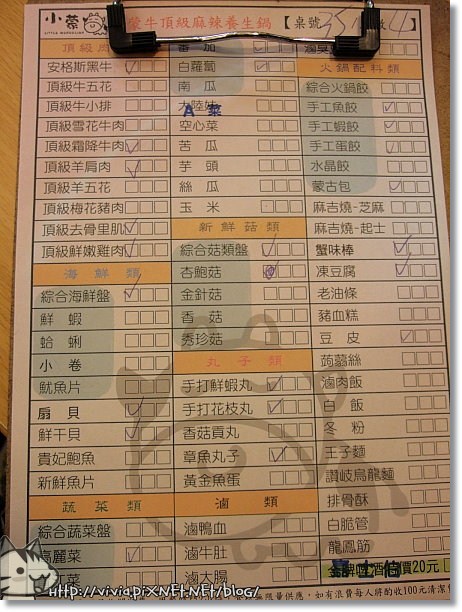 小蒙牛頂級麻辣養生鍋【桌號
頂級
安格斯黑牛
頂級牛五花
頂級牛小排
頂級雪花牛肉
頂級霜降牛肉
頂級羊肩肉
頂級羊五花
頂級梅花豬肉
頂級去骨里肌
頂級鮮嫩雞肉
海鮮類
綜合海鮮盤
鮮蝦
蛤蜊
小卷
魷魚片
扇貝
鮮干貝
貴妃鮑魚
新鮮魚片
蔬菜類
綜合蔬菜盤
高麗菜
番茄
白蘿蔔
南瓜
A菜
空心菜
苦瓜
芋頭
絲瓜
玉米
新鮮菇類
綜合菇類盤
杏鮑菇
金針菇
香菇
秀珍菇
丸子類
手打鮮蝦丸
手打花枝丸
香菇貢丸
章魚丸子
黃金魚蛋
滷類
滷鴨血
滷牛肚
滷大腸
火鍋配料類
綜合火鍋餃
手工魚餃
手工蝦餃
手工蛋餃
水晶餃
蒙古包
麻吉燒-芝麻
麻吉燒-起士
蟹味棒
凍豆腐
老油條
豬血糕
豆皮
蒟蒻絲
滷肉飯
白飯
冬粉
王子麵
讚岐烏龍麵
排骨酥
白脆管
龍鳳筋
20元
限量供應，如有浪費每人將酌收100元清潔
http://viviapix.NET.NET/blog/